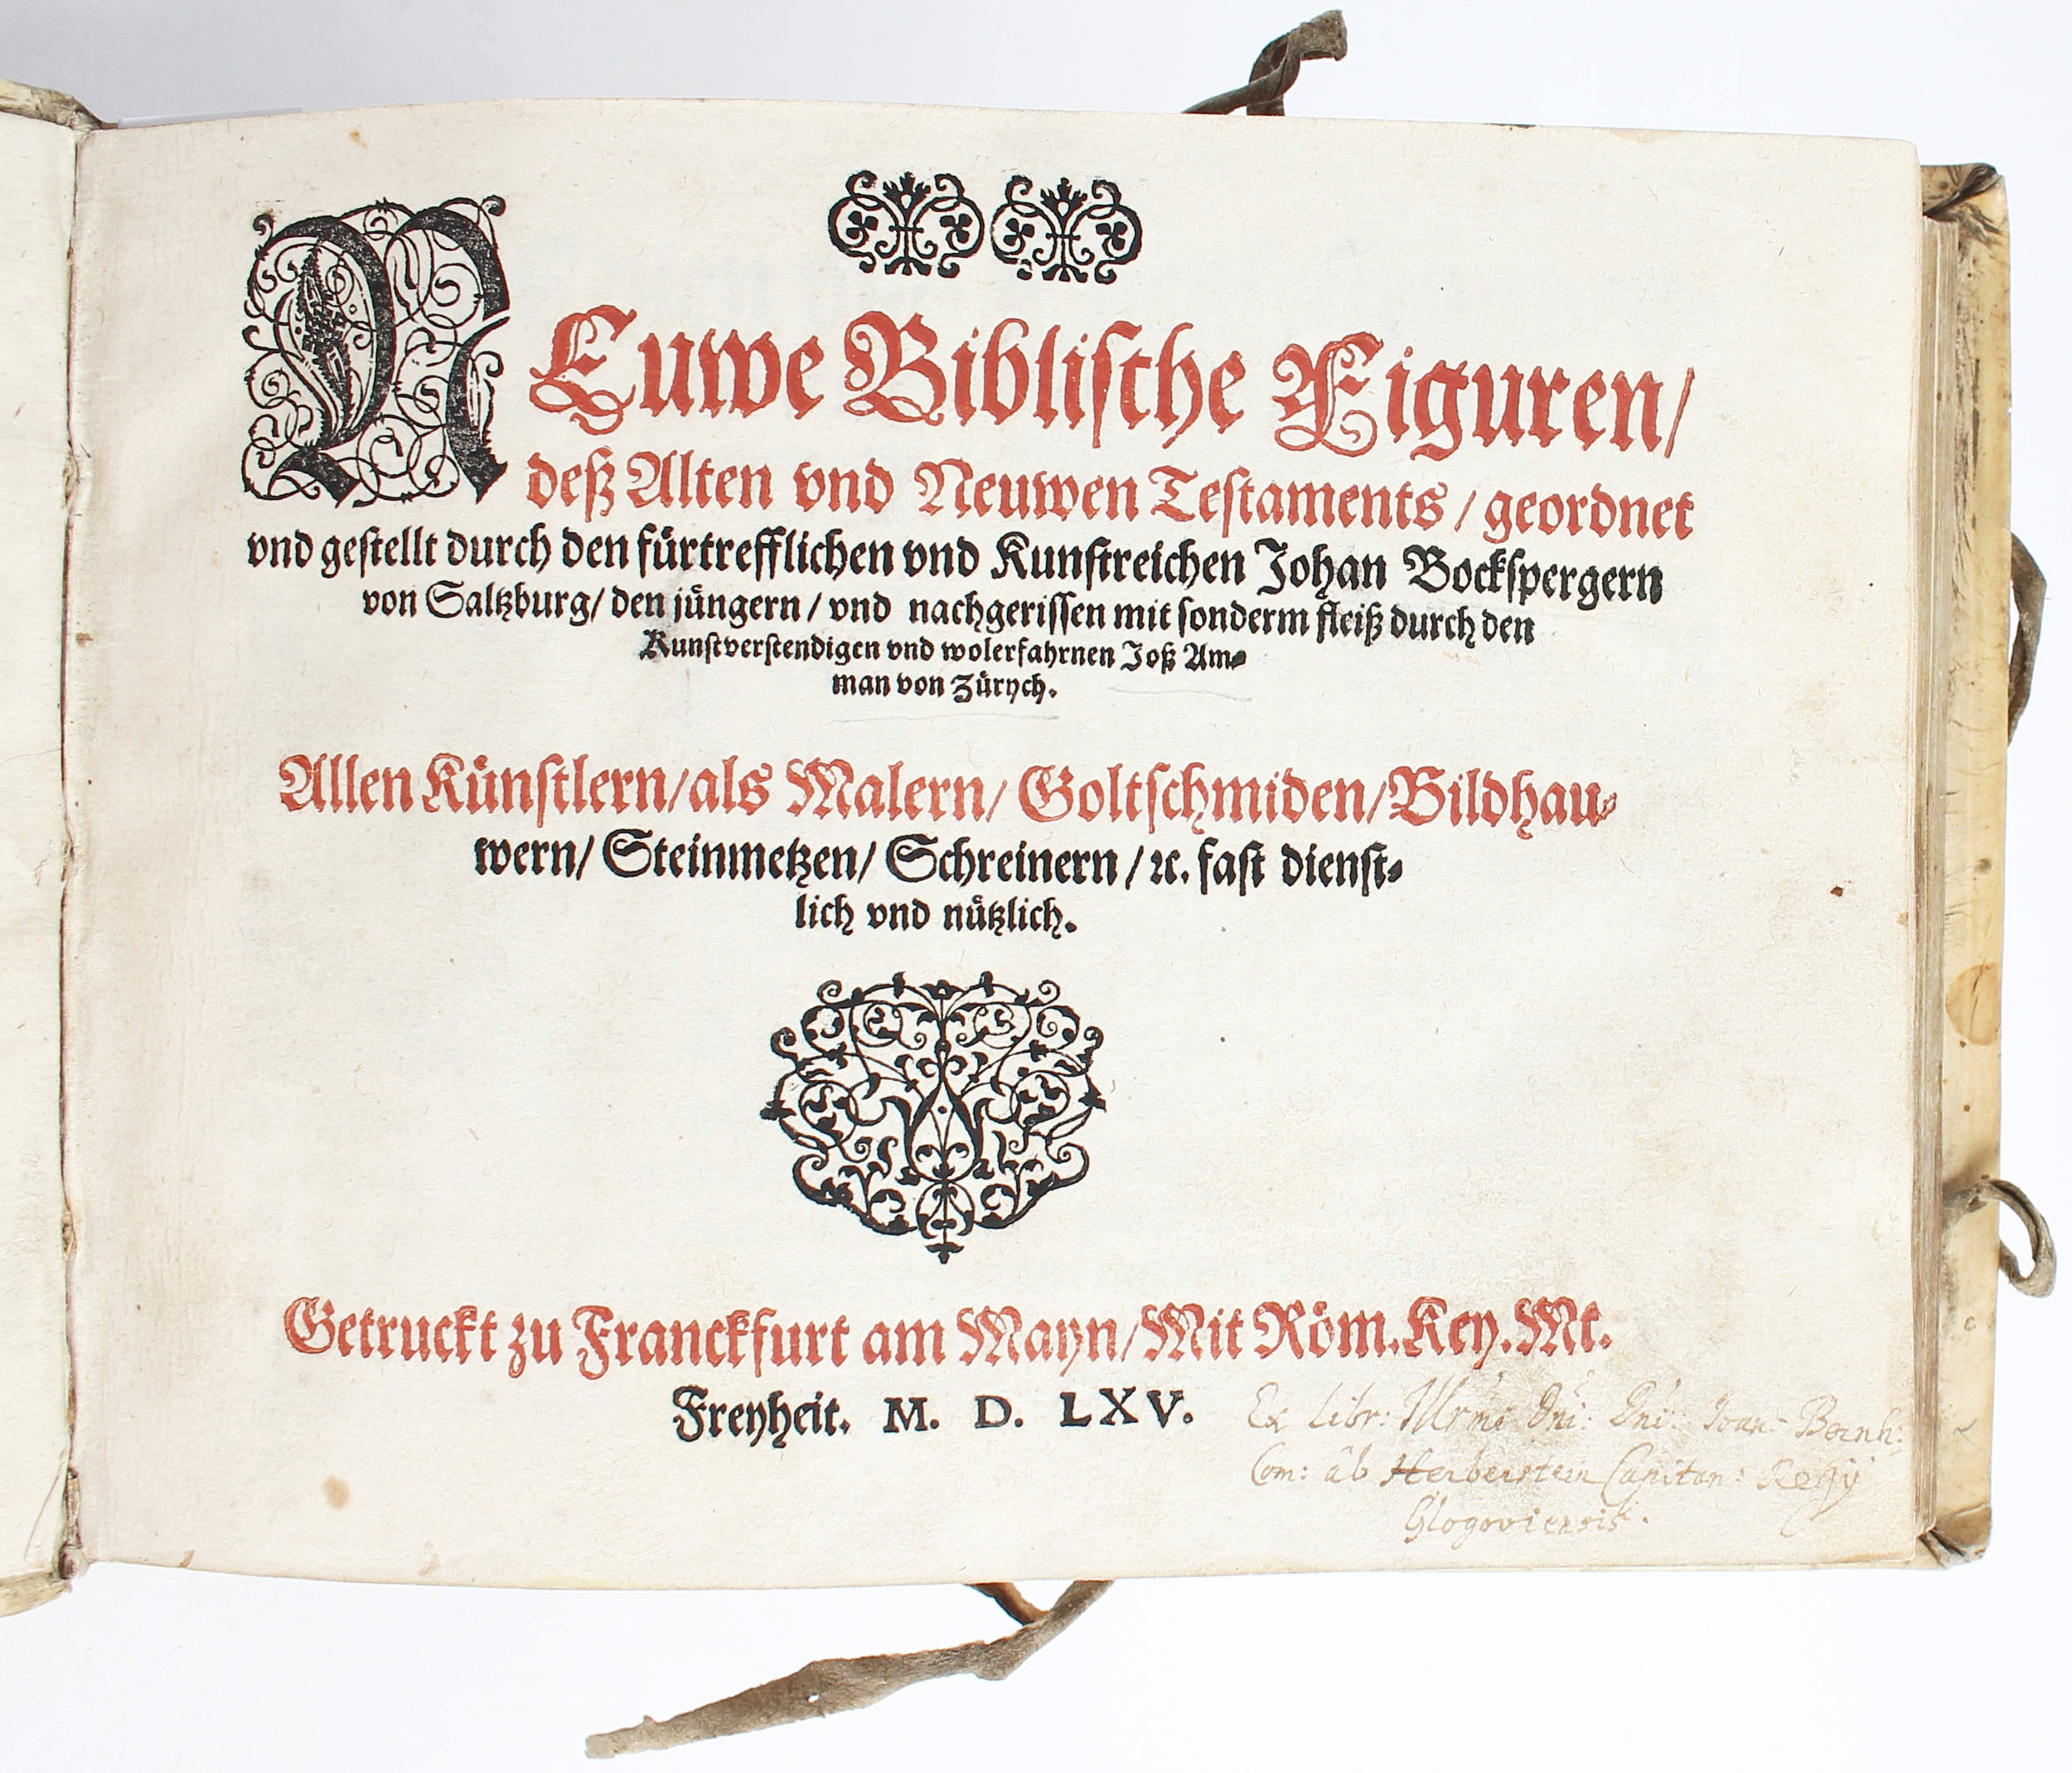 NEuwe Biblische Figuren/
deß Alten vnd Neuwen Testaments / geordnet
vnd gestellt durch den fürtrefflichen vnd Kunstreichen Johan Bockspergern
von Saltzburg/ den jüngern / vnd nachgerissen mit sonderm fleiß durch den
Kunstverstendigen vnd wolerfahrnen Joß Am⸗
man von Zürych.
Allen Künstlern/als Malern/ Goltschmiden/Bildhau⸗
wern/ Steinmetzen/ Schreinern / ꝛc. fast dienst⸗
lich vnd nützlich.
Getruckt zu Franckfurt am Mayn/Mit Röm. Key. Mt.
Freyheit. M. D. LXV.
Ex Libr: Illrmi Dni: Dni: Joan: Bernh:
Com: ab Herberstein Capitan: Regij
Glogoviensis.